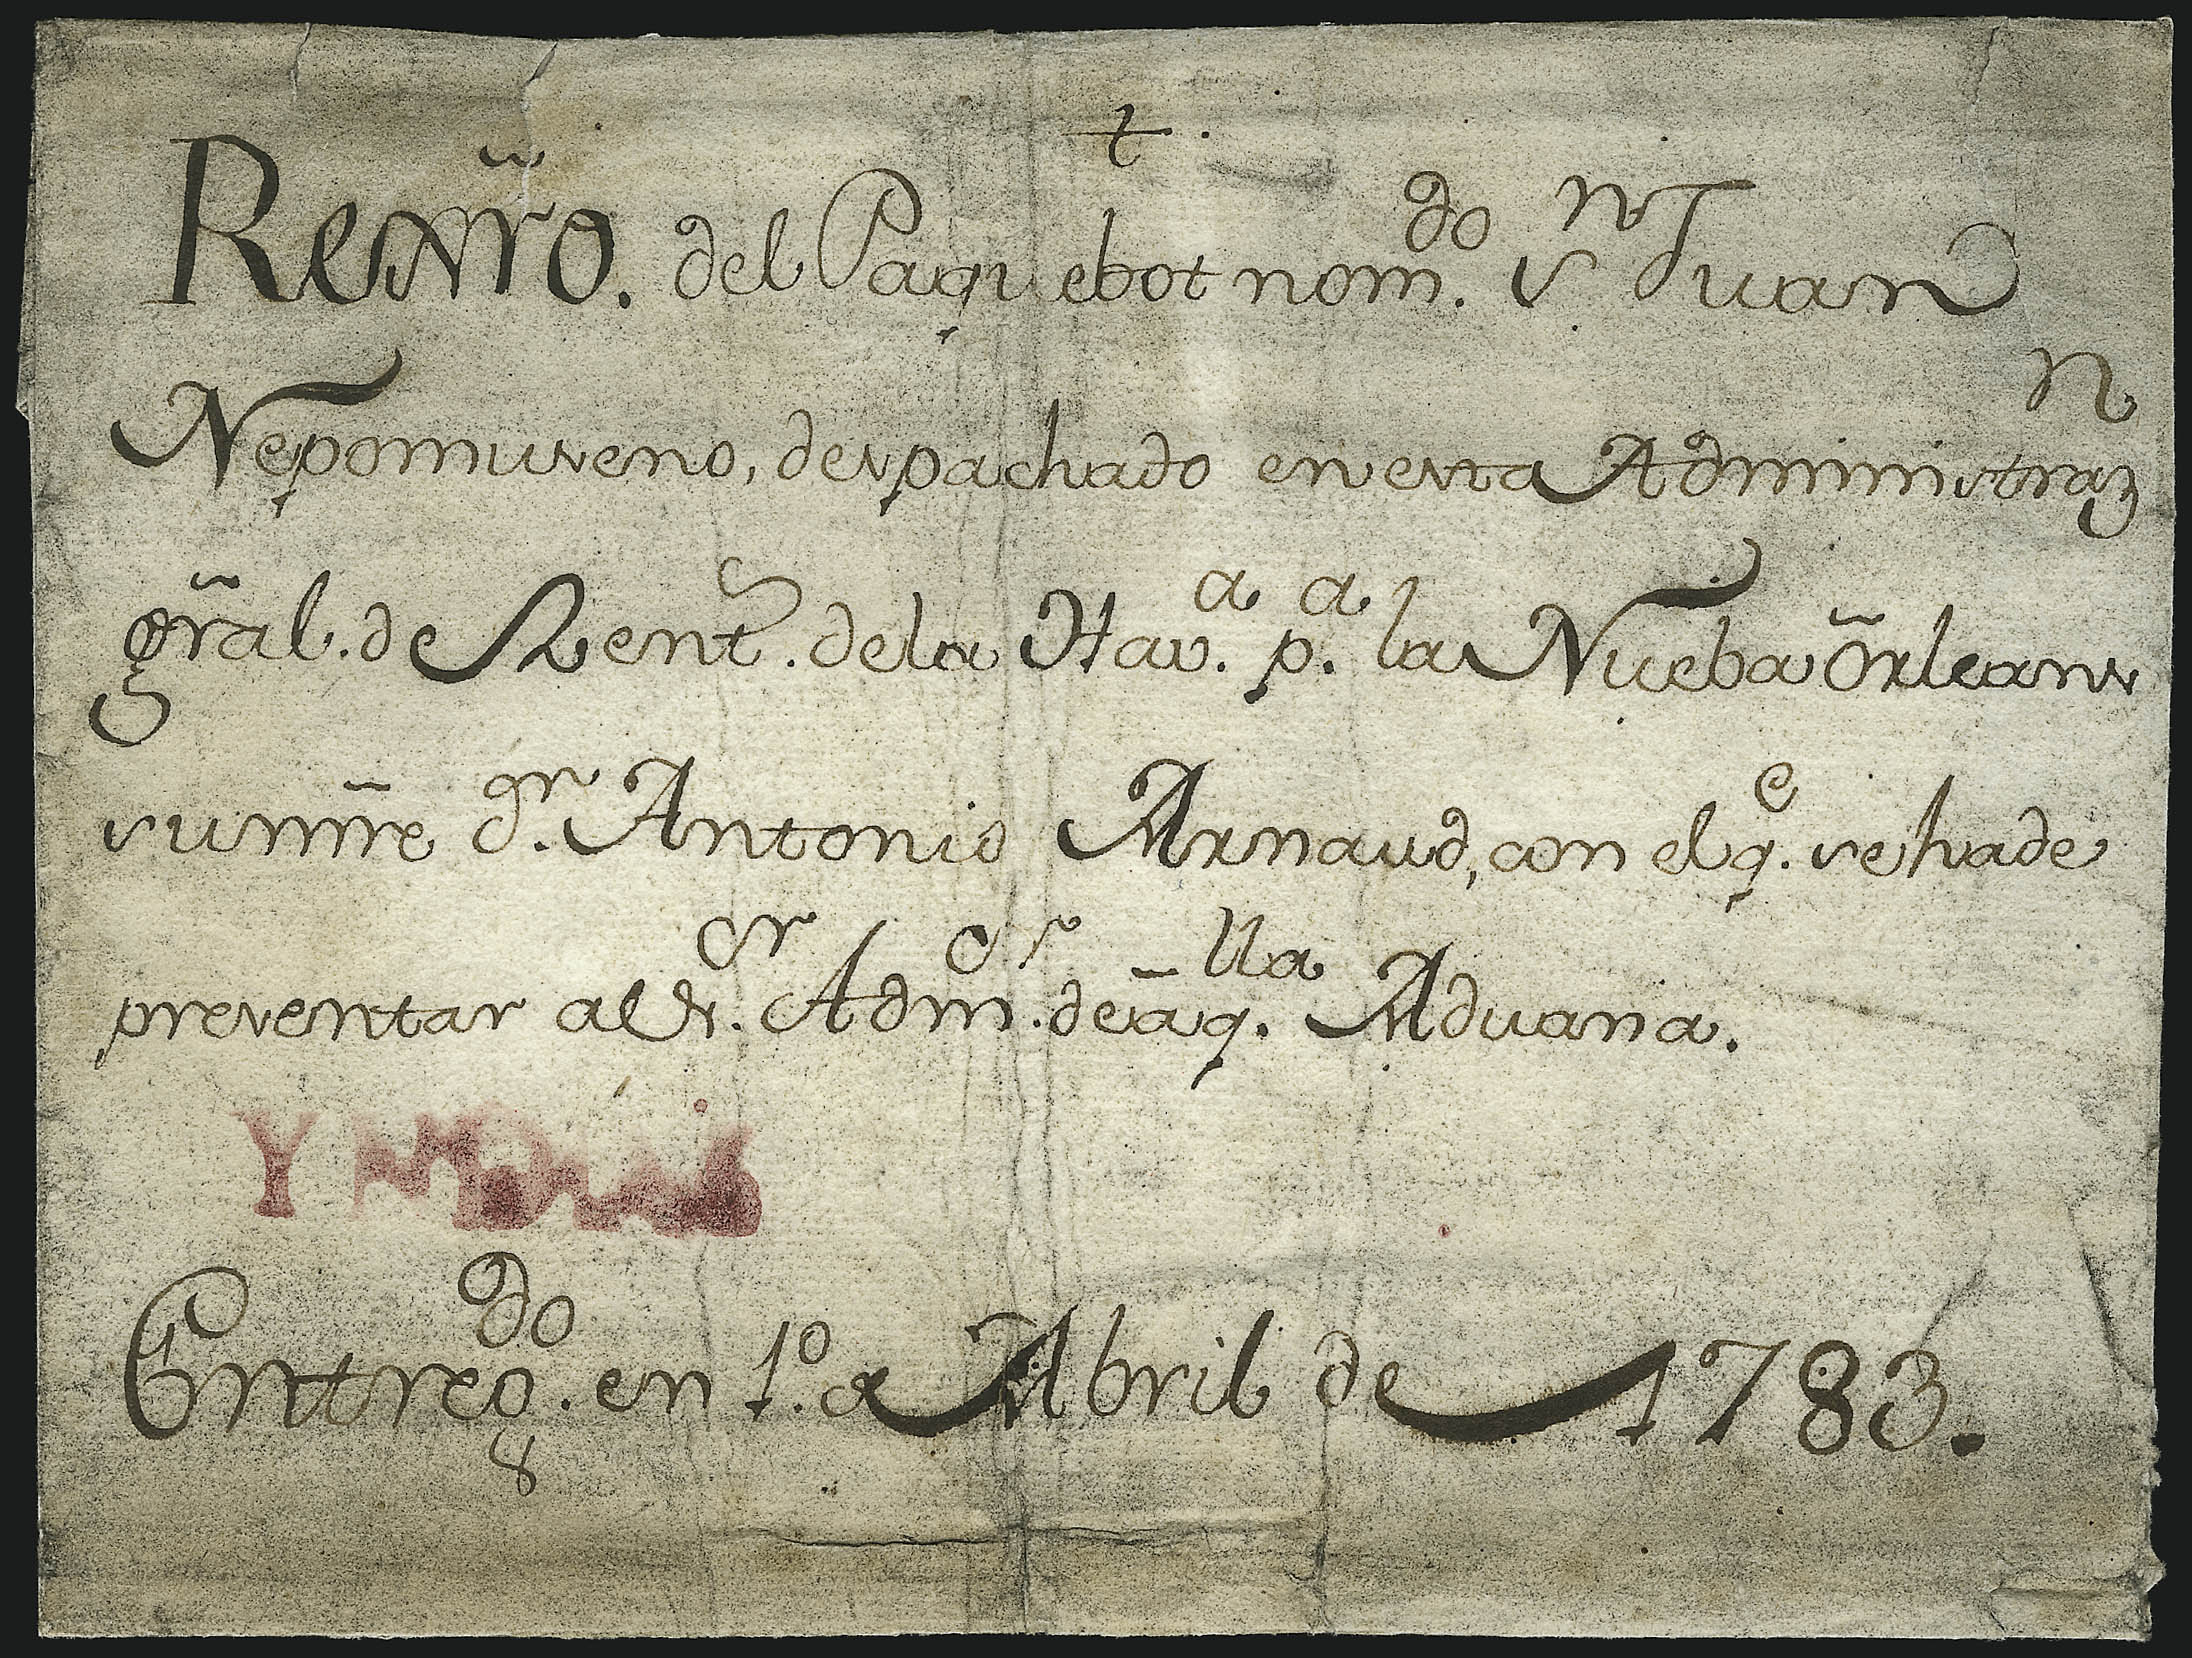 †.
Rexrõ. del Paquebot nom.do Sn Juan
Nepomuseno, despachado en esta Administrazn
grãl. de Rents. de la Hava. pa. la Nueba Orleans
su mrẽ dn. Antonio Arnaud, con el qe. se ha de
presentar al Sr. Admor. de aqlla. Aduana.
YNDIAS
Entregdo. en 1o. a Abril de 1783.